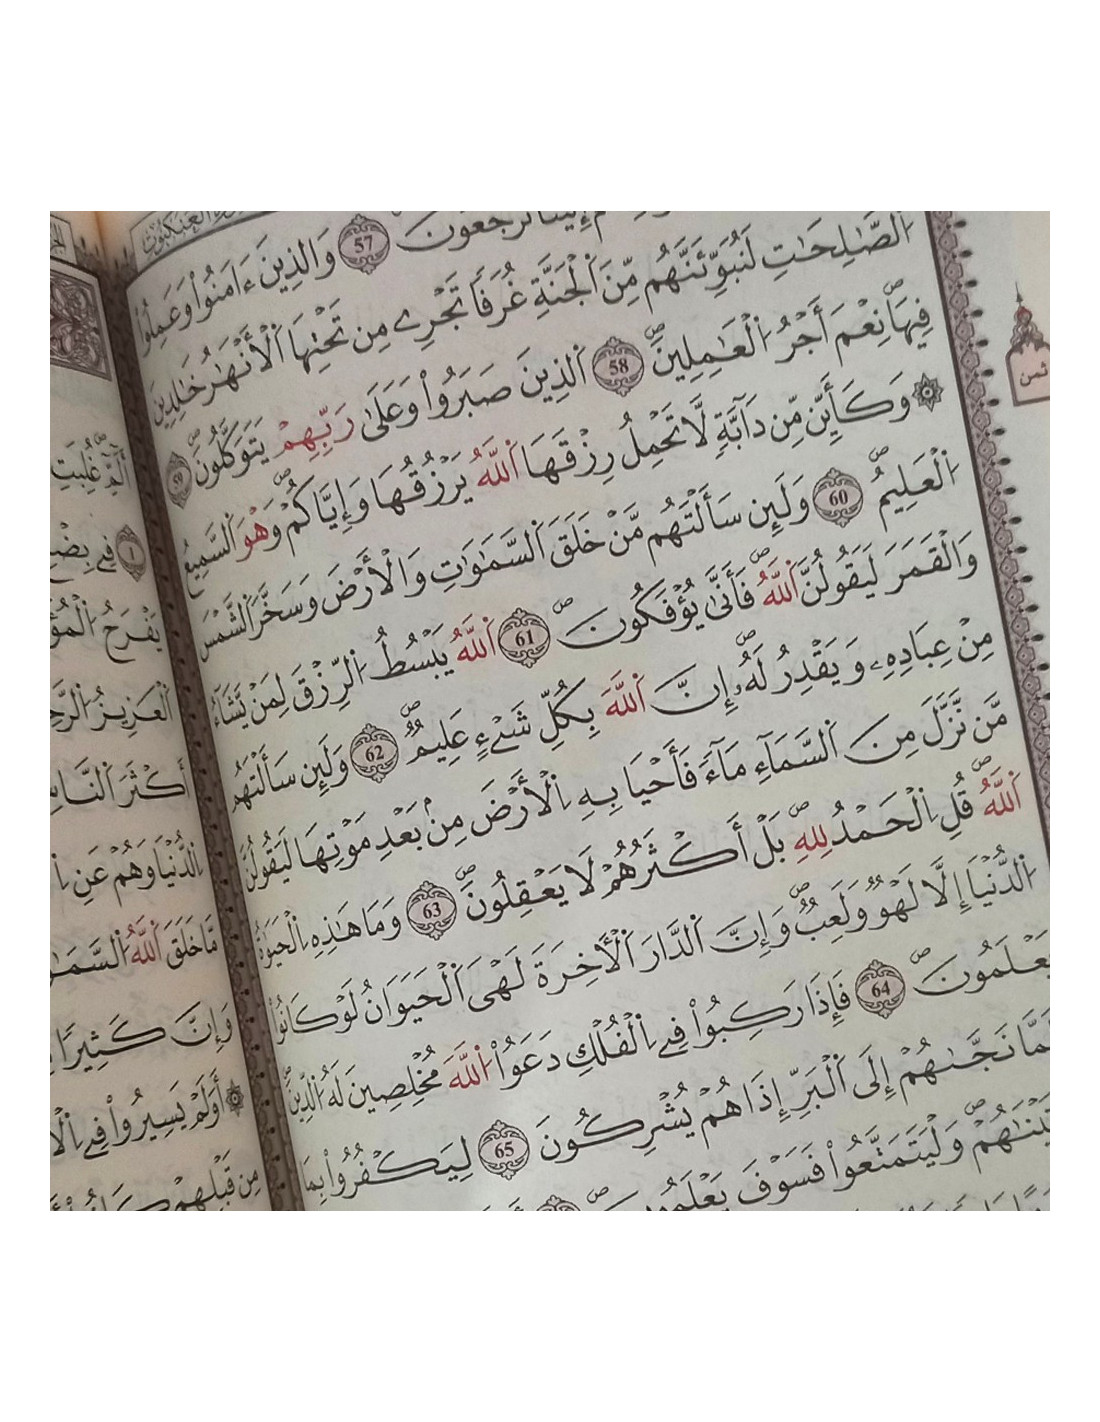 العنكبوت
إِلَيْنَا تُرْجَعُونَ 57 وَالَّذِينَ ءَامَنُواْ وَعَمِلُواْ
اُ۬لصَّٰلِحَٰتِ لَنُبَوِّئَنَّهُم مِّنَ اَ۬لْجَنَّةِ غُرَفاٗ تَجْرِے مِن تَحْتِهَا اَ۬لْأَنْهَٰرُ خَٰلِدِينَ
فِيهَا نِعْمَ أَجْرُ اُ۬لْعَٰمِلِينَ 58 اَ۬لذِينَ صَبَرُواْ وَعَلَىٰ رَبِّهِمْ يَتَوَكَّلُونَ 59
۞ وَكَأَيِّن مِّن دَآبَّةٖ لَّا تَحْمِلُ رِزْقَهَا اَ۬للَّهُ يَرْزُقُهَا وَإِيَّاكُمْ وَهْوَ اَ۬لسَّمِيعُ
اُ۬لْعَلِيمُ 60 وَلَئِن سَأَلْتَهُم مَّنْ خَلَقَ اَ۬لسَّمَٰوَٰتِ وَالْأَرْضَ وَسَخَّرَ اَ۬لشَّمْسَ
وَالْقَمَرَ لَيَقُولُنَّ اَ۬للَّهُ فَأَنَّىٰ يُؤْفَكُونَ 61 اَ۬للَّهُ يَبْسُطُ اُ۬لرِّزْقَ لِمَنْ يَّشَآءُ
مِنْ عِبَادِهِۦ وَيَقْدِرُ لَهُۥ إِنَّ اَ۬للَّهَ بِكُلِّ شَےْءٍ عَلِيمٞ 62 وَلَئِن سَأَلْتَهُم
مَّن نَّزَّلَ مِنَ اَ۬لسَّمَآءِ مَآءٗ فَأَحْيَا بِهِ اِ۬لْأَرْضَ مِنۢ بَعْدِ مَوْتِهَا لَيَقُولُنَّ
اَ۬للَّهُ قُلِ اِ۬لْحَمْدُ لِلهِ بَلْ أَكْثَرُهُمْ لَا يَعْقِلُونَ 63 وَمَا هَٰذِهِ اِ۬لْحَيَوٰةُ
اُ۬لدُّنْيَا إِلَّا لَهْوٞ وَلَعِبٞ وَإِنَّ اَ۬لدَّارَ اَ۬لْأَخِرَةَ لَهْىَ اَ۬لْحَيَوَانُ لَوْ كَانُواْ
يَعْلَمُونَ 64 فَإِذَا رَكِبُواْ فِے اِ۬لْفُلْكِ دَعَوُاْ اُ۬للَّهَ مُخْلِصِينَ لَهُ اُ۬لدِّينَ
نَجَّىٰهُمْ إِلَى اَ۬لْبَرِّ إِذَا هُمْ يُشْرِكُونَ 65 لِيَكْفُرُواْ بِمَا
وَلْيَتَمَتَّعُواْ فَسَوْفَ يَعْلَمُونَ
ثمن
أَلٓمِّٓ غُلِبَتِ
1 فِے
يَفْرَحُ
اُ۬لْعَزِيزُ
أَكْثَرَ اَ۬لنَّاسِ
اَ۬لدُّنْيَا وَهُمْ عَنِ
مَّا خَلَقَ اَ۬للَّهُ
وَإِنَّ كَثِيراٗ
۞ أَوَلَمْ يَسِيرُواْ فِے
مِن قَبْلِهِمْ